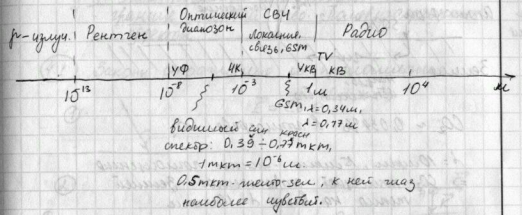 γ-излуч. Рентген Оптический диапозон СВЧ локация, связь, GSM Радио
TV
УФ ЧК УКВ КВ
10⁻¹³ 10⁻⁸ 10⁻³ 1м 10⁴ м
GSM, λ=0,34м,
λ=0,17м
видимый син красн
спектр: 0,39÷0,77мкм,
1мкм=10⁻⁶м
0,5мкм-желто-зел, к ней глаз
наиболее чувствит.